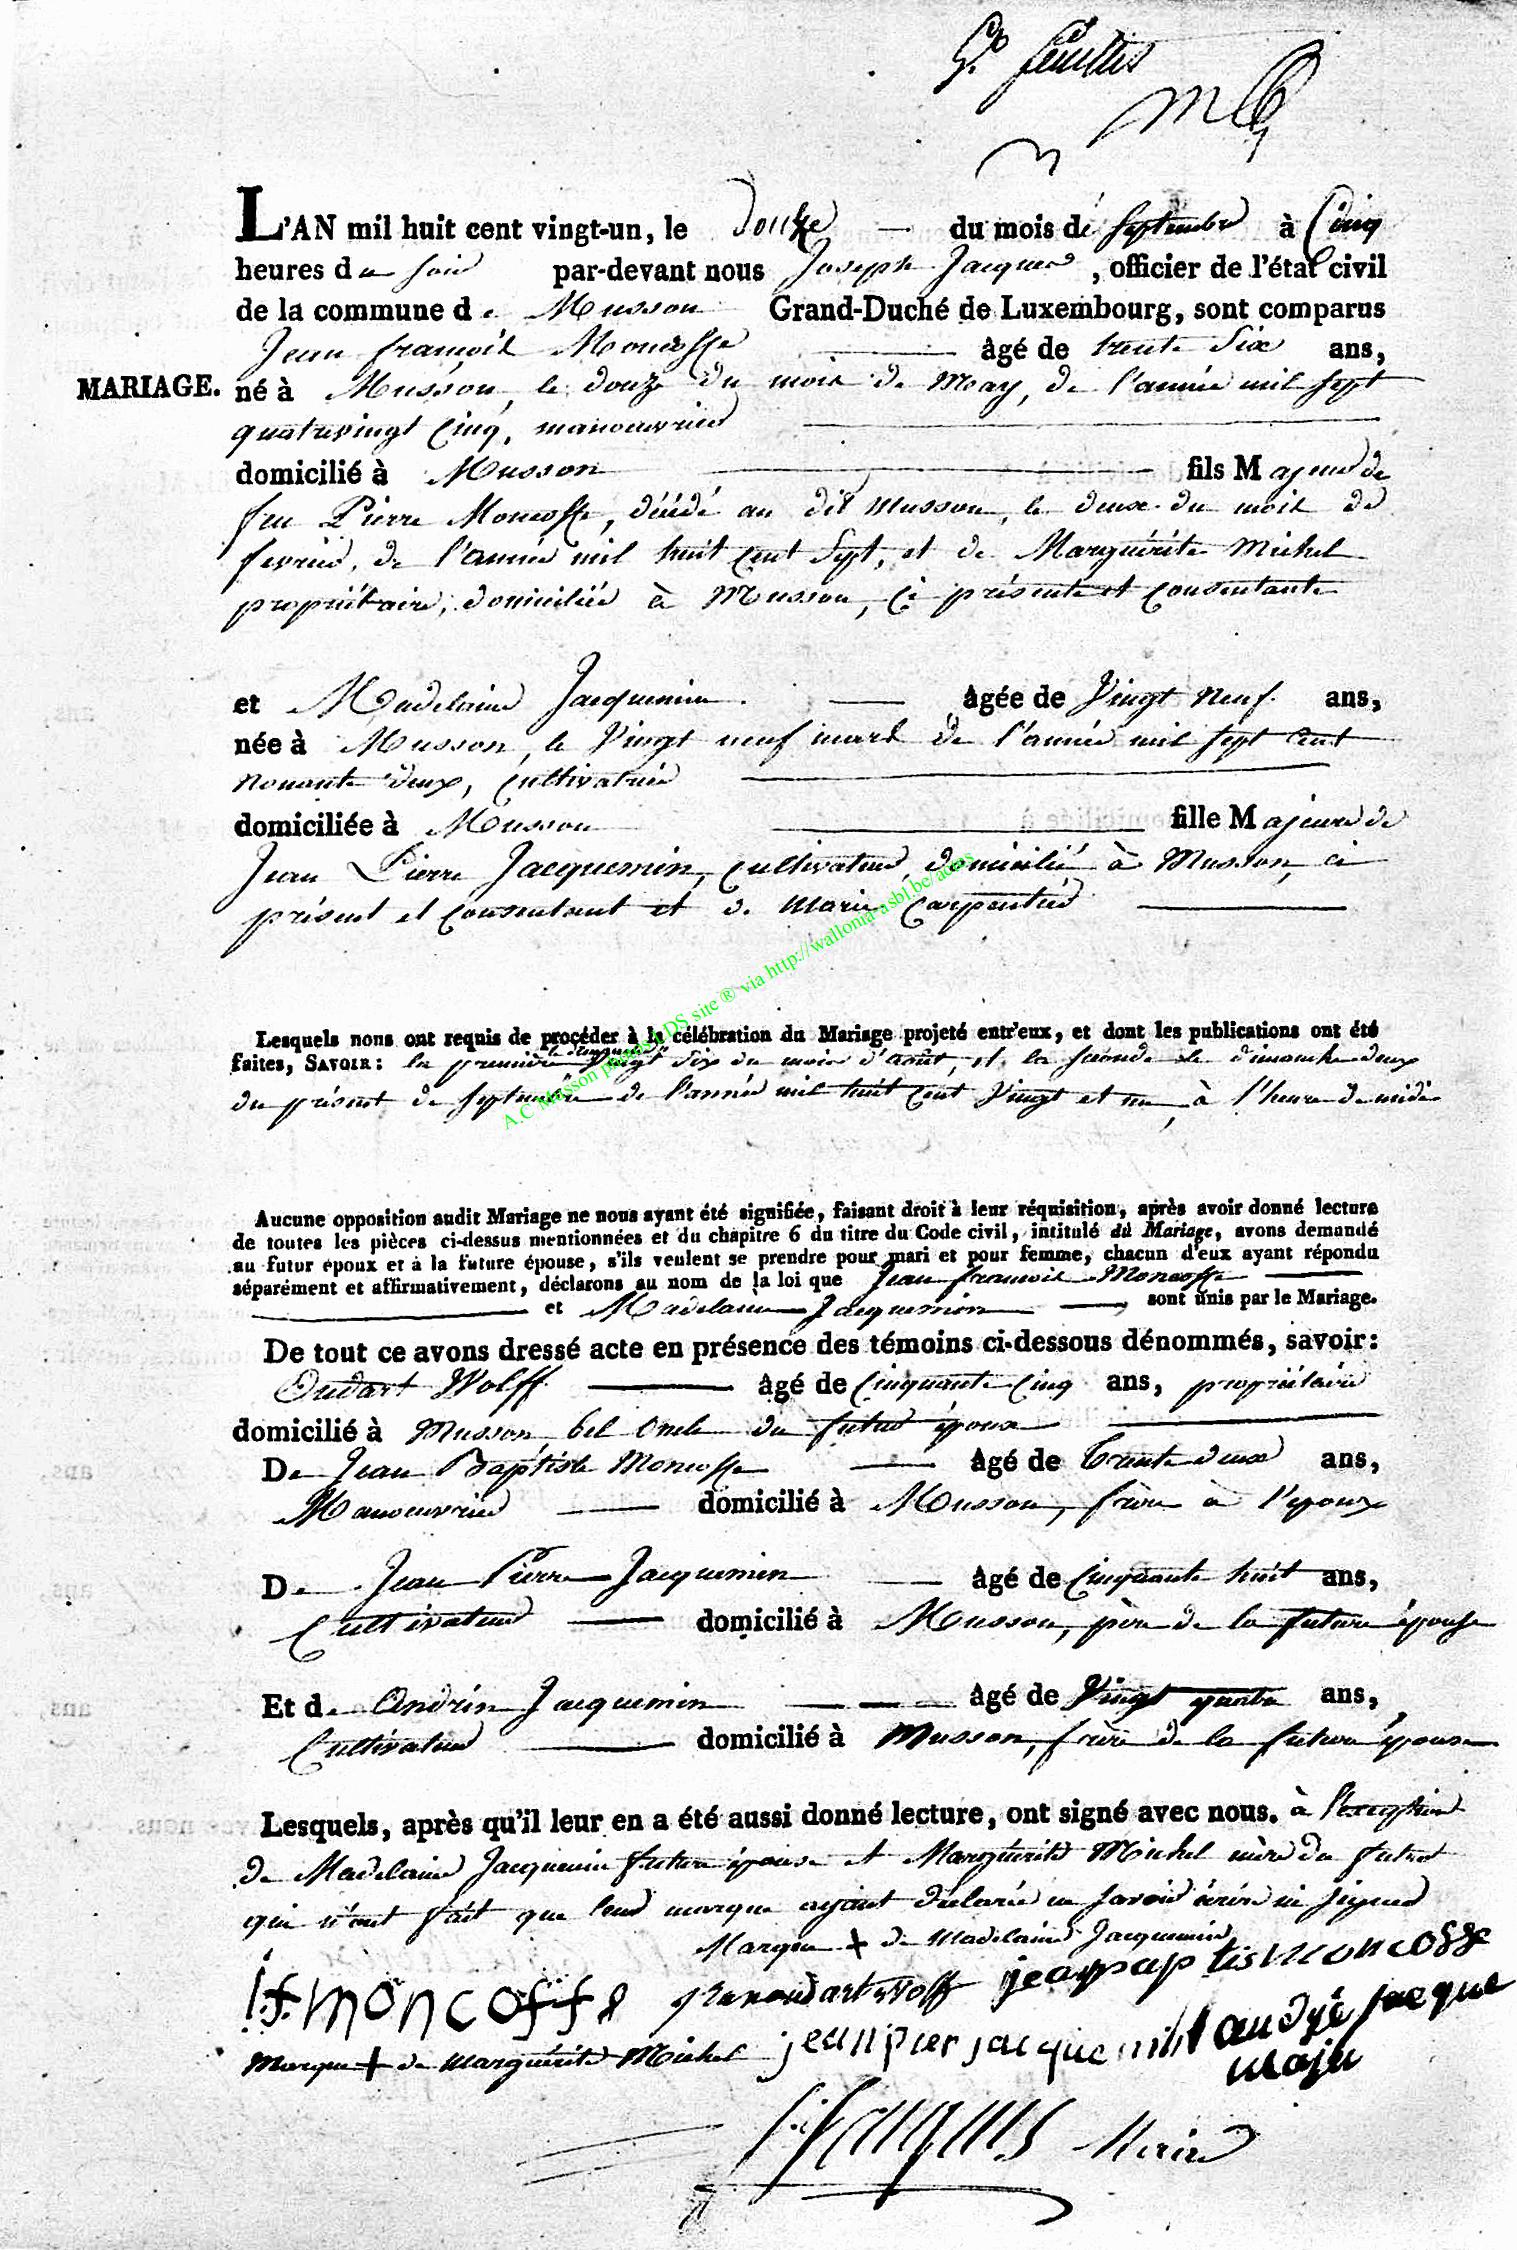 feuilles
L'AN mil huit cent vingt-un, le Douze du mois de Septembre à Cinq
heures du soir par-devant nous Joseph Jacques, officier de l'état civil
de la commune de Musson Grand-Duché de Luxembourg, sont comparus
Jean françois Moncosse âgé de trente Six ans,
MARIAGE. né à Musson, le douze du mois de May, de l'année mil sept
quatrevingt Cinq, manoeuvrier
domicilié à Musson fils Majeur de
feu Pierre Moncosse, décédé au dit Musson, le deux du mois de
fevrier, de l'année mil huit cent Sept, et de Marguérite Michel
propriétaire, domiciliée à Musson, Ci présente et consentante
et Madelaine Jacquemin âgée de Vingt Neuf ans,
née à Musson, le Vingt neuf mars de l'année mil sept cent
Nonante deux, Cultivatrice
domiciliée à Musson fille Majeure de
Jean Pierre Jacquemin, Cultivateur, domicilié à Musson, ci
présent et consentant et de Marie Carpentier
A.C Musson photos LDS site ® via http://wallonia-asbl.be/actes
Lesquels nous ont requis de procéder à la célébration du Mariage projeté entr'eux, et dont les publications ont été
le dimanche
faites, SAVOIR : la première Vingt Six du mois d'août, et la seconde le dimanche deux
du présent de Septembre de l'année mil huit Cent Vingt et un, à l'heure de midi
Aucune opposition audit Mariage ne nous ayant été signifiée, faisant droit à leur réquisition, après avoir donné lecture
de toutes les pièces ci-dessus mentionnées et du chapitre 6 du titre du Code civil, intitulé du Mariage, avons demandé
au futur époux et à la future épouse, s'ils veulent se prendre pour mari et pour femme, chacun d'eux ayant répondu
séparément et affirmativement, déclarons au nom de la loi que Jean francois Moncosse
et Madelaine Jacquemin sont unis par le Mariage.
De tout ce avons dressé acte en présence des témoins ci-dessous dénommés, savoir:
Oudart Wolff âgé de Cinquante Cinq ans, propriétaire
domicilié à Musson bel oncle du futur époux
De Jean Baptiste Moncosse âgé de Trente deux ans,
Manoeuvrier domicilié à Musson, frère à l'époux
De Jean Pierre Jacquemin âgé de Cinquante huit ans,
Cultivateur domicilié à Musson, père de la future épouse
Et de Andrin Jacquemin âgé de Vingt quatre ans,
Cultivateur domicilié à Musson, frère de la future épouse
Lesquels, après qu'il leur en a été aussi donné lecture, ont signé avec nous. à l'exception
de Madelaine Jacquemin future épouse et Marguérite Michel mère du futur
qui n'ont fait que leur marque ayant déclarée ne savoir écrire ni signer
Marque + de Madelaine Jacquemin
J f moncosse oudart wolff jeanpaptis moncosse
Marque + de Marguérite Michel jeanpier jacquemin andré jacque
Jacques Maire